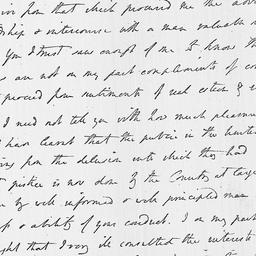 from that which procured me the
& intercourse with a man valuable
You I trust now accept of me. I know
are not on my part compliments of
proceed from sentiments of real esteem &
I need not tell you with how much pleasure
I have learnt that the public is the
from the delusion into which they had
justice is now done by the Country at large
by well informed & well principled men
& ability of your conduct. I on my part
that I very ill consulted the interests